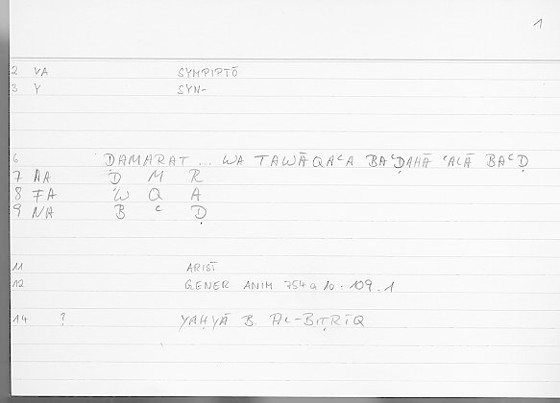 1
2 VA SYMPIPTŌ
3 Y SYN-
6 ḌAMARAT ... WA TAWĀQAᶜA BAᶜḌAHĀ ᶜALĀ BAᶜḌ
7 AA Ḍ M R
8 FA W Q A
9 NA B ᶜ Ḍ
11 ARIST
12 GENER ANIM 754 a 10 = 109.1
14 ? YAḤYĀ B. AL-BIṬRĪQ